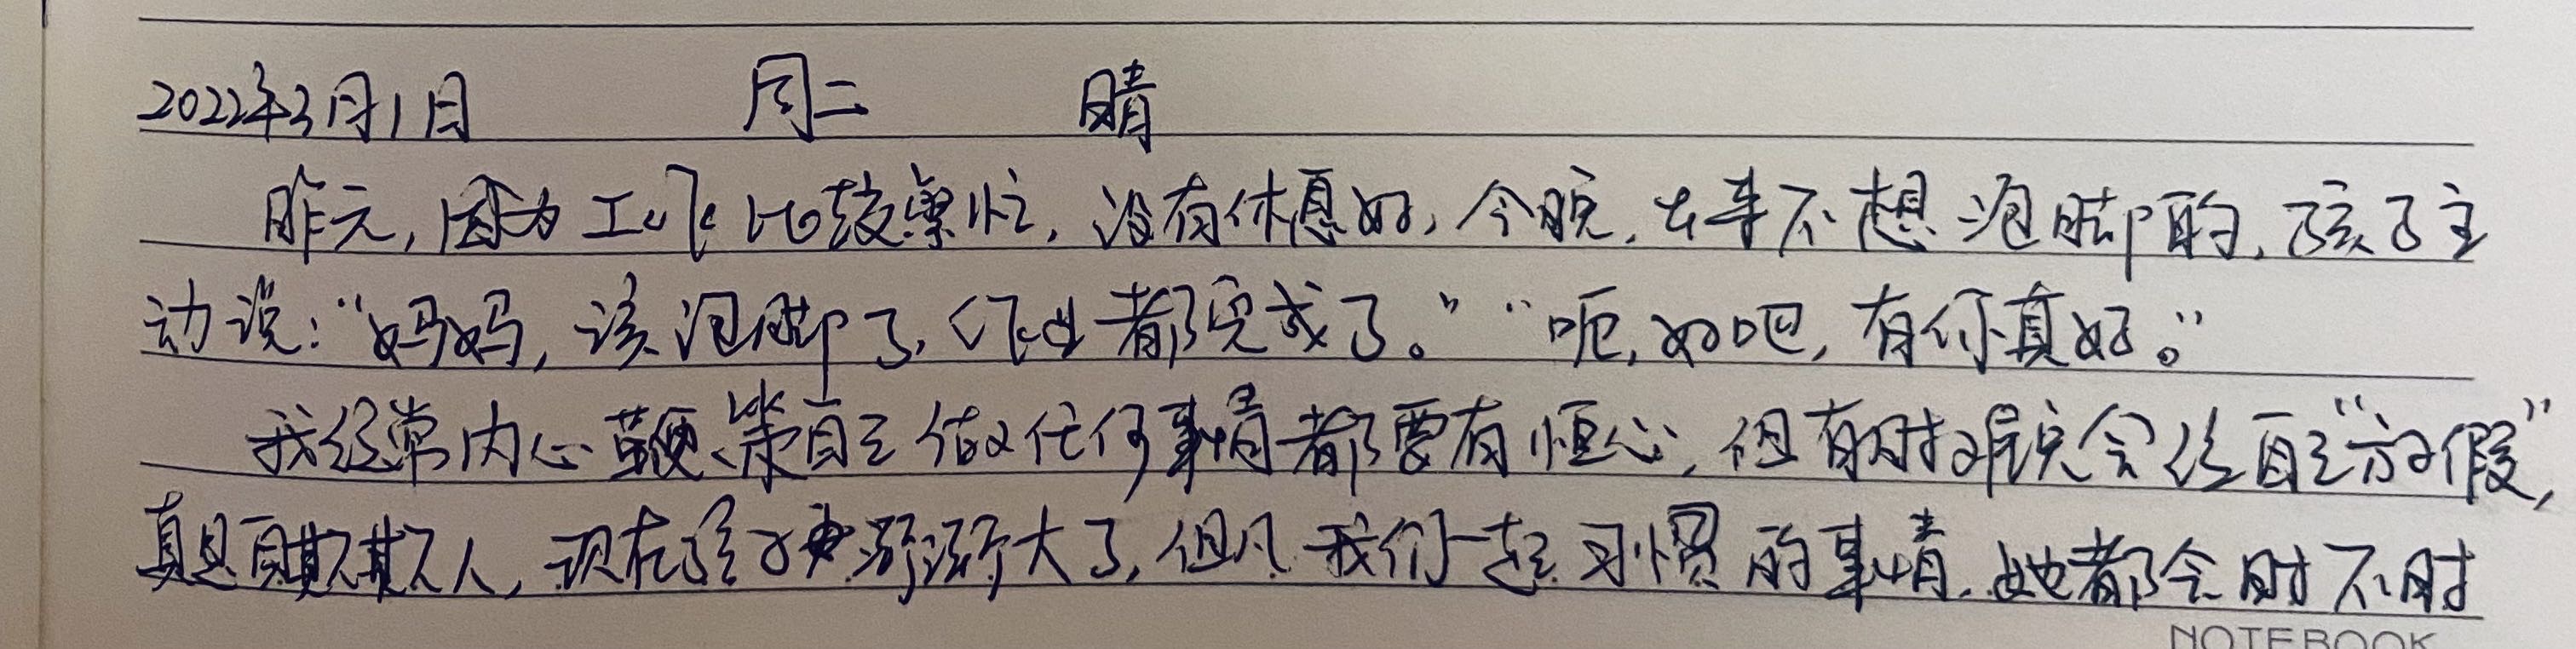 2022年3月1日 周二 晴
昨天,因为工作比较繁忙,没有休息好,今晚,本来不想泡脚的,孩子主
动说:“妈妈,该泡脚了,作业都完成了。”“呃,好吧,有你真好。”
我经常内心鞭策自己做任何事情都要有恒心,但有时难免会给自己“放假”,
真是自欺欺人,现在孩子也渐渐大了,但凡我们一起习惯的事情,她都会时不时
NOTEBOOK